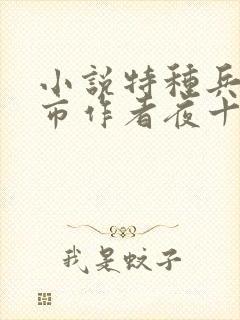 小說特種兵
市作者夜十
我是蚊子